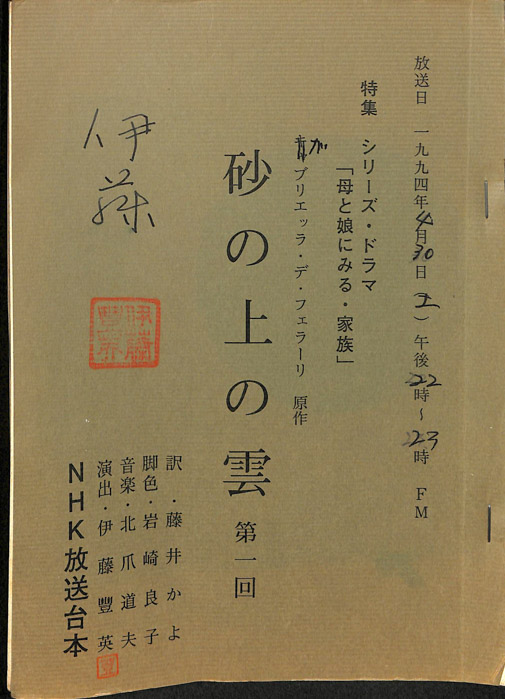 放送日 一九九四年4月30日(土)午後22時～23時 FM
特集 シリーズ・ドラマ
「母と娘にみる・家族」
ガブリエッラ・デ・フェラーリ 原作
砂の上の雲 第一回
訳・藤井かよ
脚色・岩崎良子
音楽・北爪道夫
演出・伊藤豐英
NHK放送台本
伊藤